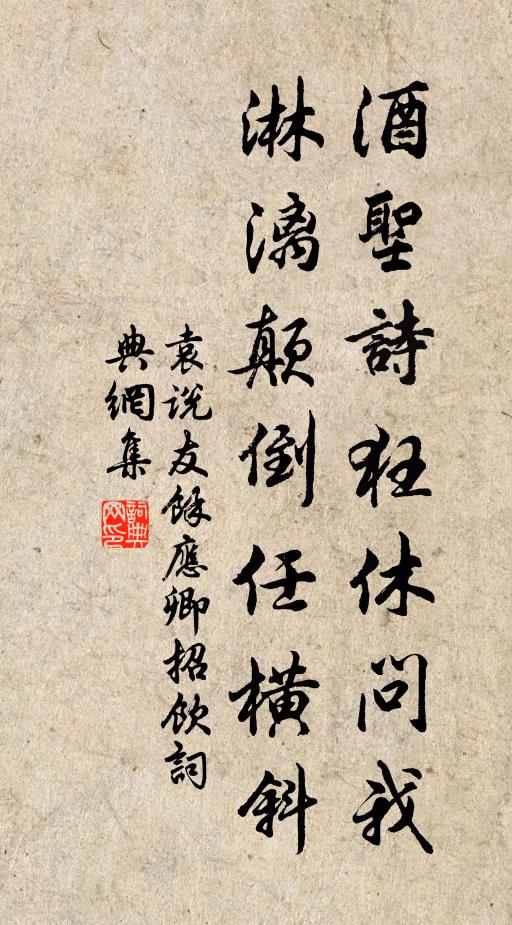 酒聖詩狂休問我
淋漓顛倒任橫斜
袁说友餘應卿招飲詞
典網集
詞典網印